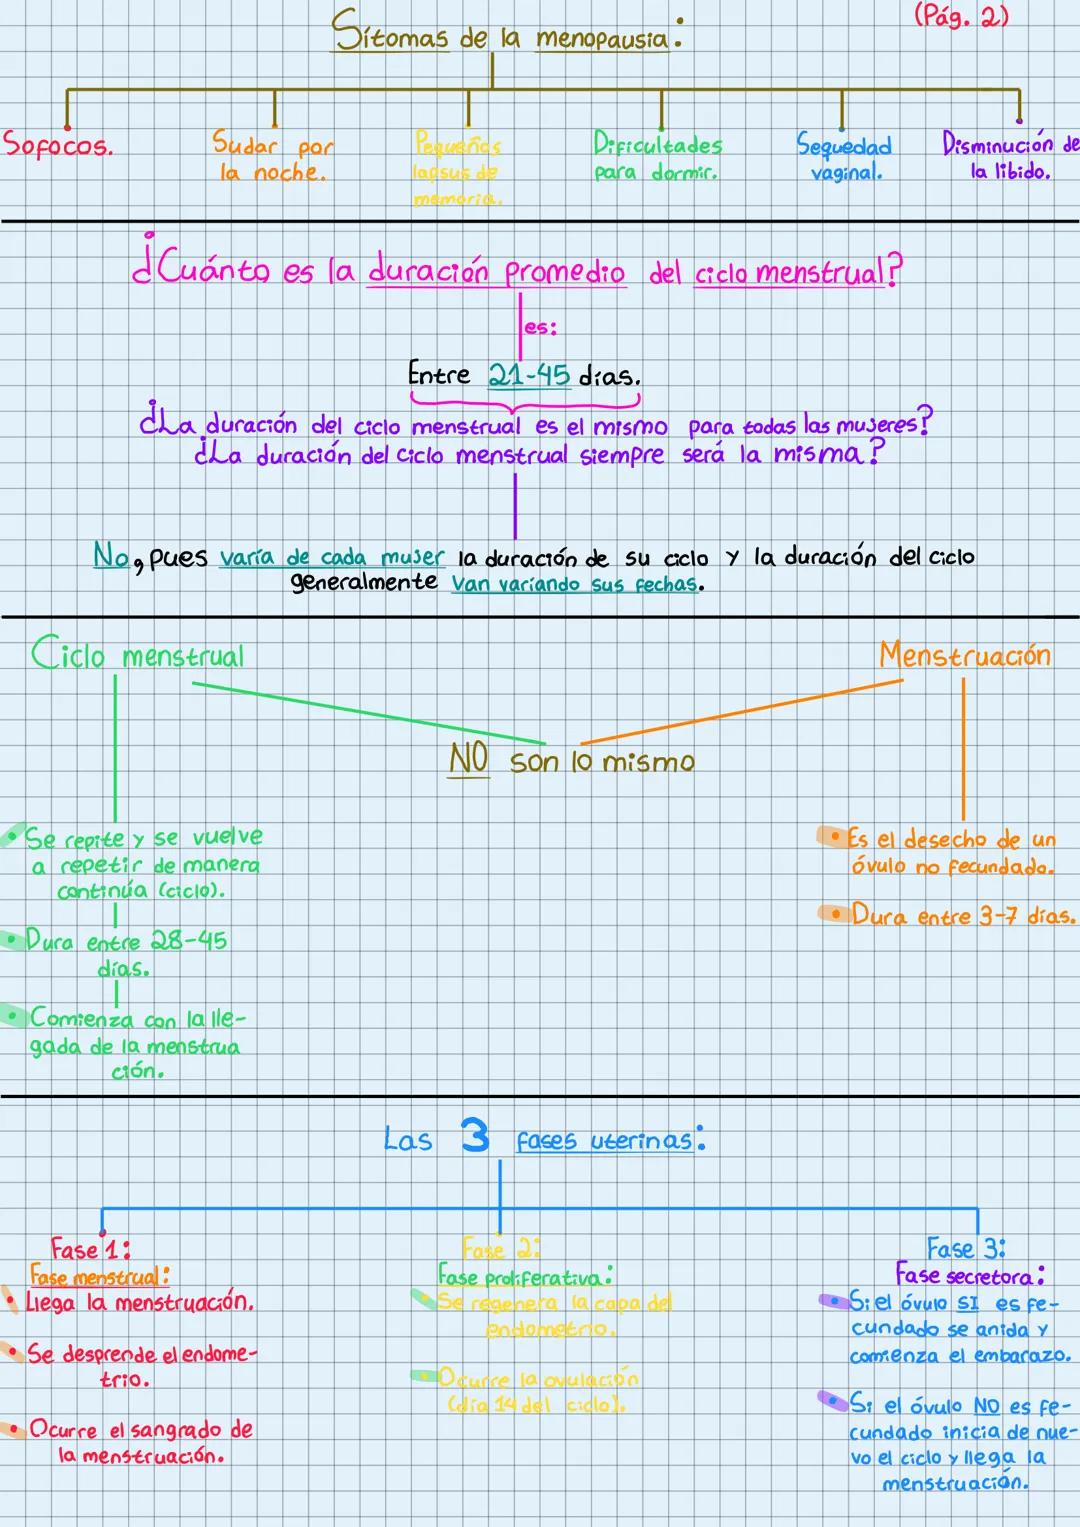 (Pág. 2)
Sítomas de la menopausia:
Sofocos.
Sudar por
la noche.
Pequeños
lapsus de
memoria.
Dificultades
para dormir.
Sequedad
vaginal.
Disminución de
la libido.
¿Cuánto es la duración promedio del ciclo menstrual?
es:
Entre 21-45 días.
¿La duración del ciclo menstrual es el mismo para todas las mujeres?
¿La duración del ciclo menstrual siempre será la misma?
No, pues varía de cada mujer la duración de su ciclo y la duración del ciclo
generalmente van variando sus fechas.
Ciclo menstrual
Menstruación
NO son lo mismo
• Se repite y se vuelve
a repetir de manera
continúa (ciclo).
• Dura entre 28-45
días.
• Comienza con la lle-
gada de la menstrua
ción.
• Es el desecho de un
óvulo no fecundado.
• Dura entre 3-7 días.
Las 3 fases uterinas:
Fase 1:
Fase menstrual:
• Llega la menstruación.
• Se desprende el endome-
trio.
• Ocurre el sangrado de
la menstruación.
Fase 2:
Fase proliferativa:
• Se regenera la capa del
endometrio.
• Ocurre la ovulación
(día 14 del ciclo).
Fase 3:
Fase secretora:
• Si el óvulo SI es fe-
cundado se anida y
comienza el embarazo.
• Si el óvulo NO es fe-
cundado inicia de nue-
vo el ciclo y llega la
menstruación.